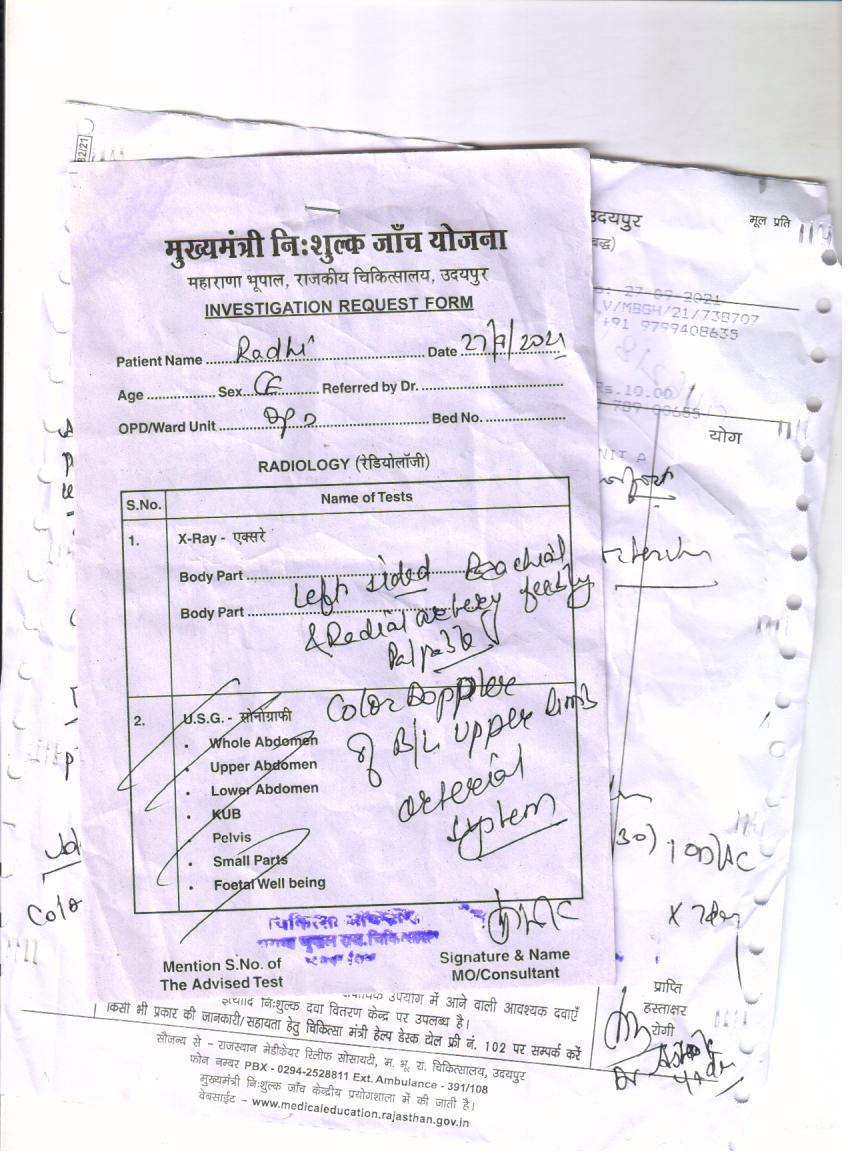 2/21
उदयपुर
मूल प्रति
बद्ध)
मुख्यमंत्री निःशुल्क जाँच योजना
महाराणा भूपाल, राजकीय चिकित्सालय, उदयपुर
INVESTIGATION REQUEST FORM
27-09-2021
V/MBGH/21/738707
+91 9799408635
Patient Name Radhi Date 27/9/2021
Age Sex Referred by Dr.
Rs.10.00
OPD/Ward Unit OPD Bed No.
UNIT A
योग
RADIOLOGY (रेडियोलॉजी)
S.No. Name of Tests
1. X-Ray - एक्सरे
Body Part Left sided Brachial
Body Part & Radial artery feebly
Palpable
2. U.S.G. - सोनोग्राफी Color Doppler
• Whole Abdomen of B/L upper limb
• Upper Abdomen
• Lower Abdomen arterial
• KUB system
• Pelvis
• Small Parts
• Foetal Well being
Colo
Mention S.No. of
The Advised Test
Signature & Name
MO/Consultant
प्राप्ति
हस्ताक्षर
रोगी
उपयोग में आने वाली आवश्यक दवाएँ
इत्यादि निःशुल्क दवा वितरण केन्द्र पर उपलब्ध है।
किसी भी प्रकार की जानकारी/सहायता हेतु चिकित्सा मंत्री हेल्प डेस्क टोल फ्री नं. 102 पर सम्पर्क करें
सौजन्य से - राजस्थान मेडीकेयर रिलीफ सोसायटी, म. भू. रा. चिकित्सालय, उदयपुर
फोन नम्बर PBX - 0294-2528811 Ext. Ambulance - 391/108
मुख्यमंत्री निःशुल्क जाँच केन्द्रीय प्रयोगशाला में की जाती है।
वेबसाईट - www.medicaleducation.rajasthan.gov.in